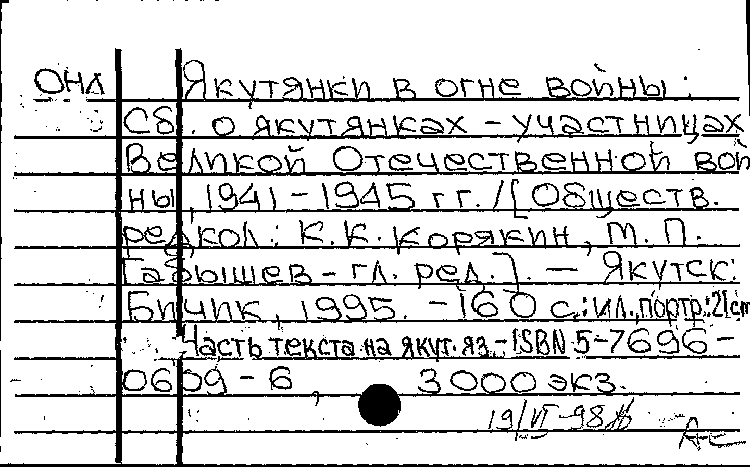 ОНЛ Якутянки в огне войны :
Сб. о якутянках – участницах
Великой Отечественной вой
ны, 1941 – 1945 гг. / [Обществ.
редкол.: К.К. Корякин, М.П.
Габышев – гл. ред.]. — Якутск:
Бичик, 1995. – 160 с.: ил., портр.; 21 cm
Часть текста на якут. яз. – ISBN 5-7696-
0609-6, 3000 экз.
19/VI-98